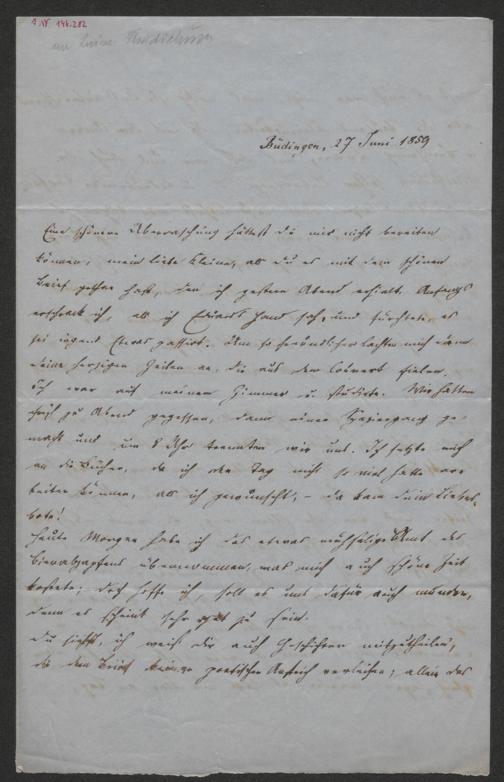 I.N. 146.282
an Luise
Büdingen, 27 Juni 1859
Eine schönere Überraschung hättest du mir nicht bereiten
können, mein liebe Kleine, als du es mit dem schönen
Brief gethan hast, den ich gestern Abend erhielt. Anfangs
erschrack ich, als ich Eduards Hand sah, und fürchtete, es
sei irgend Etwas passirt. Um so freundlicher lachten mich dann
deine herzigen Zeilen an, die aus dem Couvert fielen.
Ich war auf meinem Zimmer u. studirte. Wir hatten
früh zu Abend gegessen, dann einen Spaziergang ge-
macht und um 8 Uhr trennten wir uns. Ich setzte mich
an die Bücher, da ich den Tag nicht so viel hatte ar-
beiten können, als ich gewünscht, – da kam dein Liebes-
bote!
Heute Morgen habe ich das etwas mühselige Amt des
Bierabzapfens übernommen, was mich auch schöne Zeit
kostete; doch hoffe ich, soll es uns dafür auch munden,
denn es scheint sehr gut zu sein.
Du siehst, ich weiß dir auch Geschichten mitzutheilen,
die dem Brief keinen poetischen Anstrich verleihen; allein das